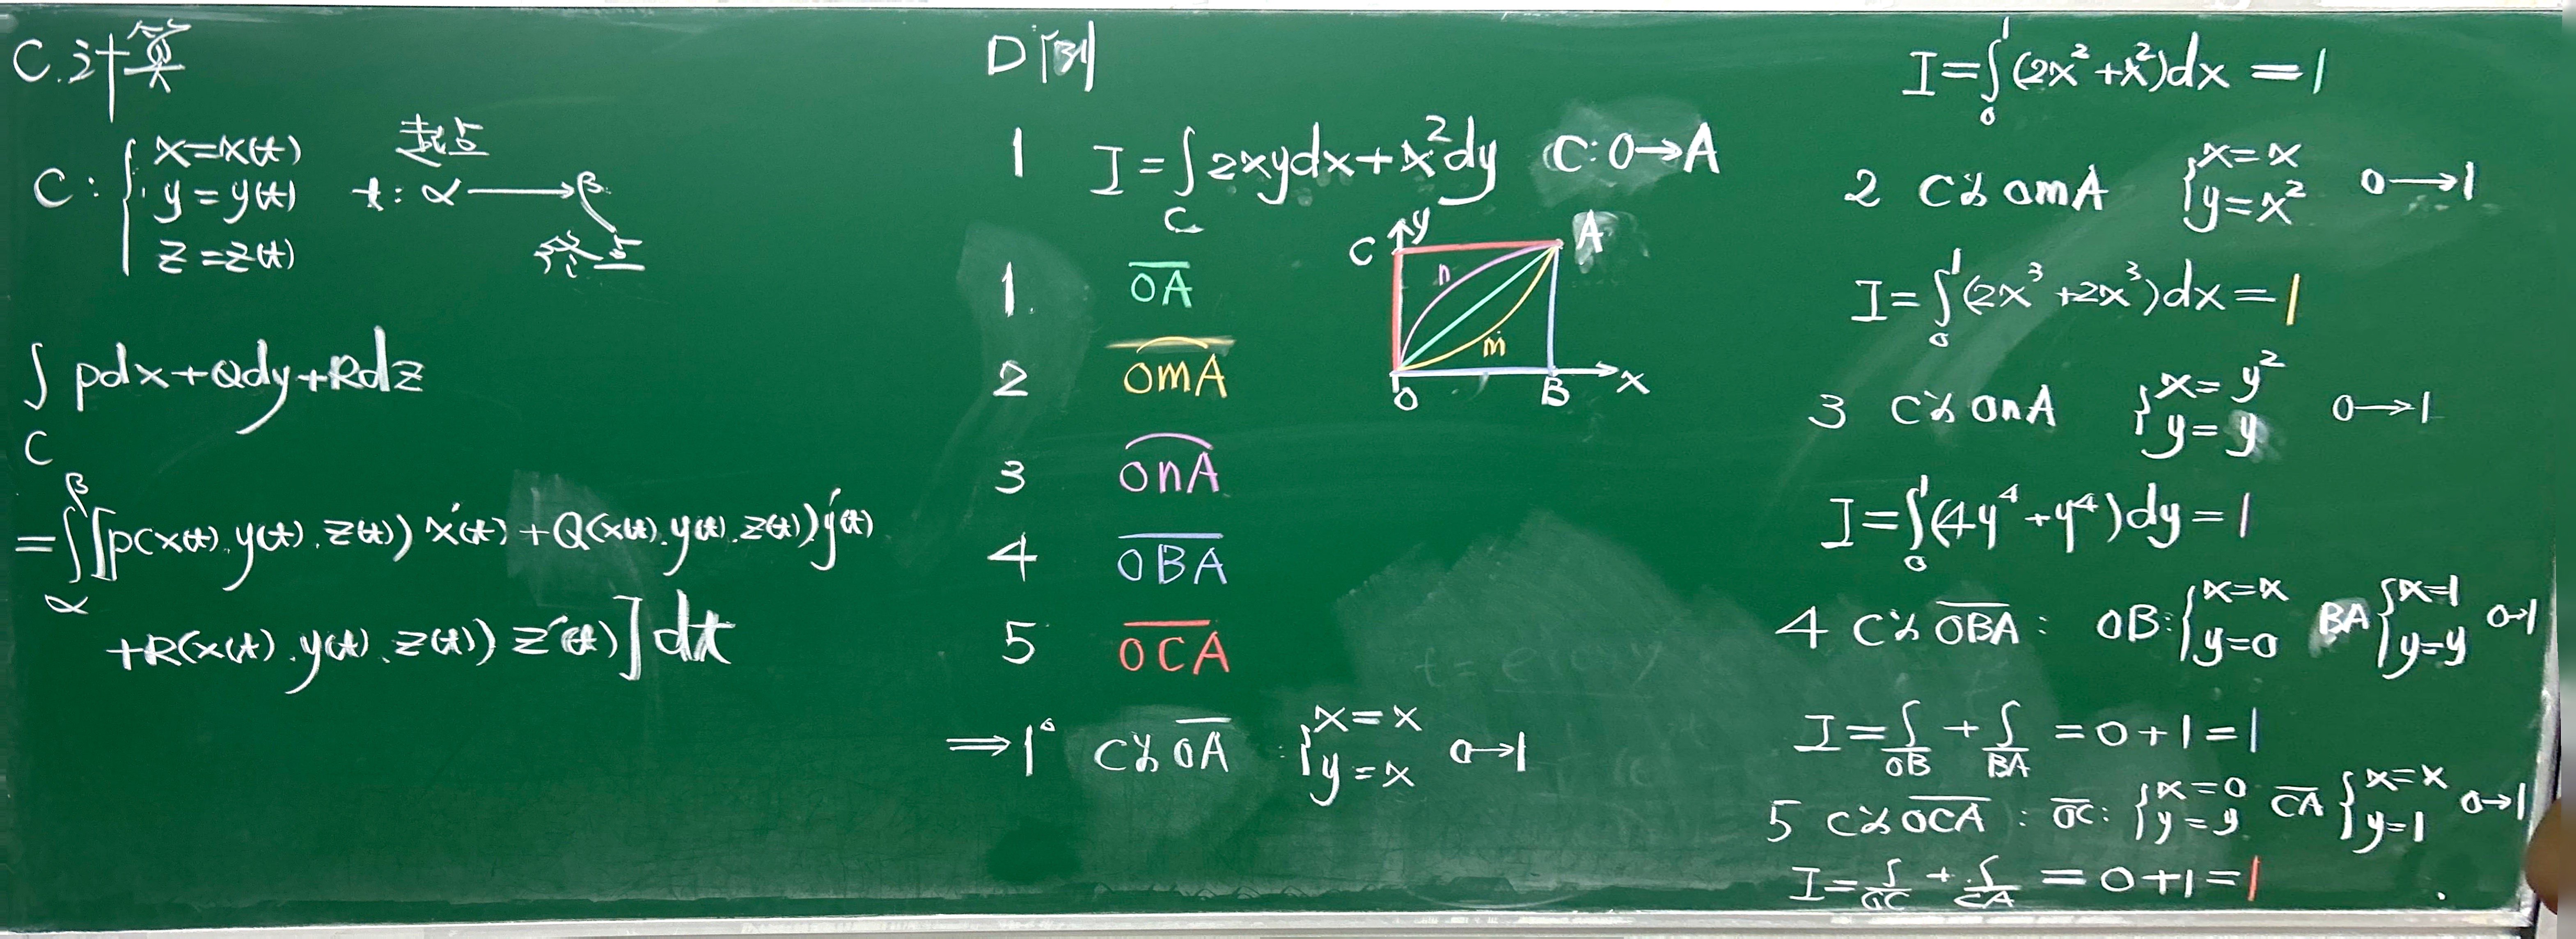 C.计算
C: { x=x(t)
y=y(t)
z=z(t)
起点
t: α⟶β
终点
∫ pdx+Qdy+Rdz
C
=∫[p(x(t).y(t).z(t)) x'(t) +Q(x(t).y(t).z(t))y'(t)
β
α
+R(x(t).y(t).z(t)) z'(t)] dt
D 例
1 I=∫2xydx+x²dy C:O→A
C
1. OA
2 OmA
3 OnA
4 OBA
5 OCA
y
C A
n
m
O B x
⇒1° C为OA : {x=x y=x 0→1
I=∫₀¹(2x²+x²)dx =1
2 C为OmA {x=x y=x² 0→1
I=∫₀¹(2x³+2x³)dx=1
3 C为OnA {x=y² y=y 0→1
I=∫₀¹(4y⁴+y⁴)dy=1
4 C为OBA: OB:{x=x y=0 BA{x=1 y=y 0→1
I=∫+∫=0+1=1
OB BA
5 C为OCA: OC:{x=0 y=y CA{x=x y=1 0→1
I=∫+∫=0+1=1
OC CA